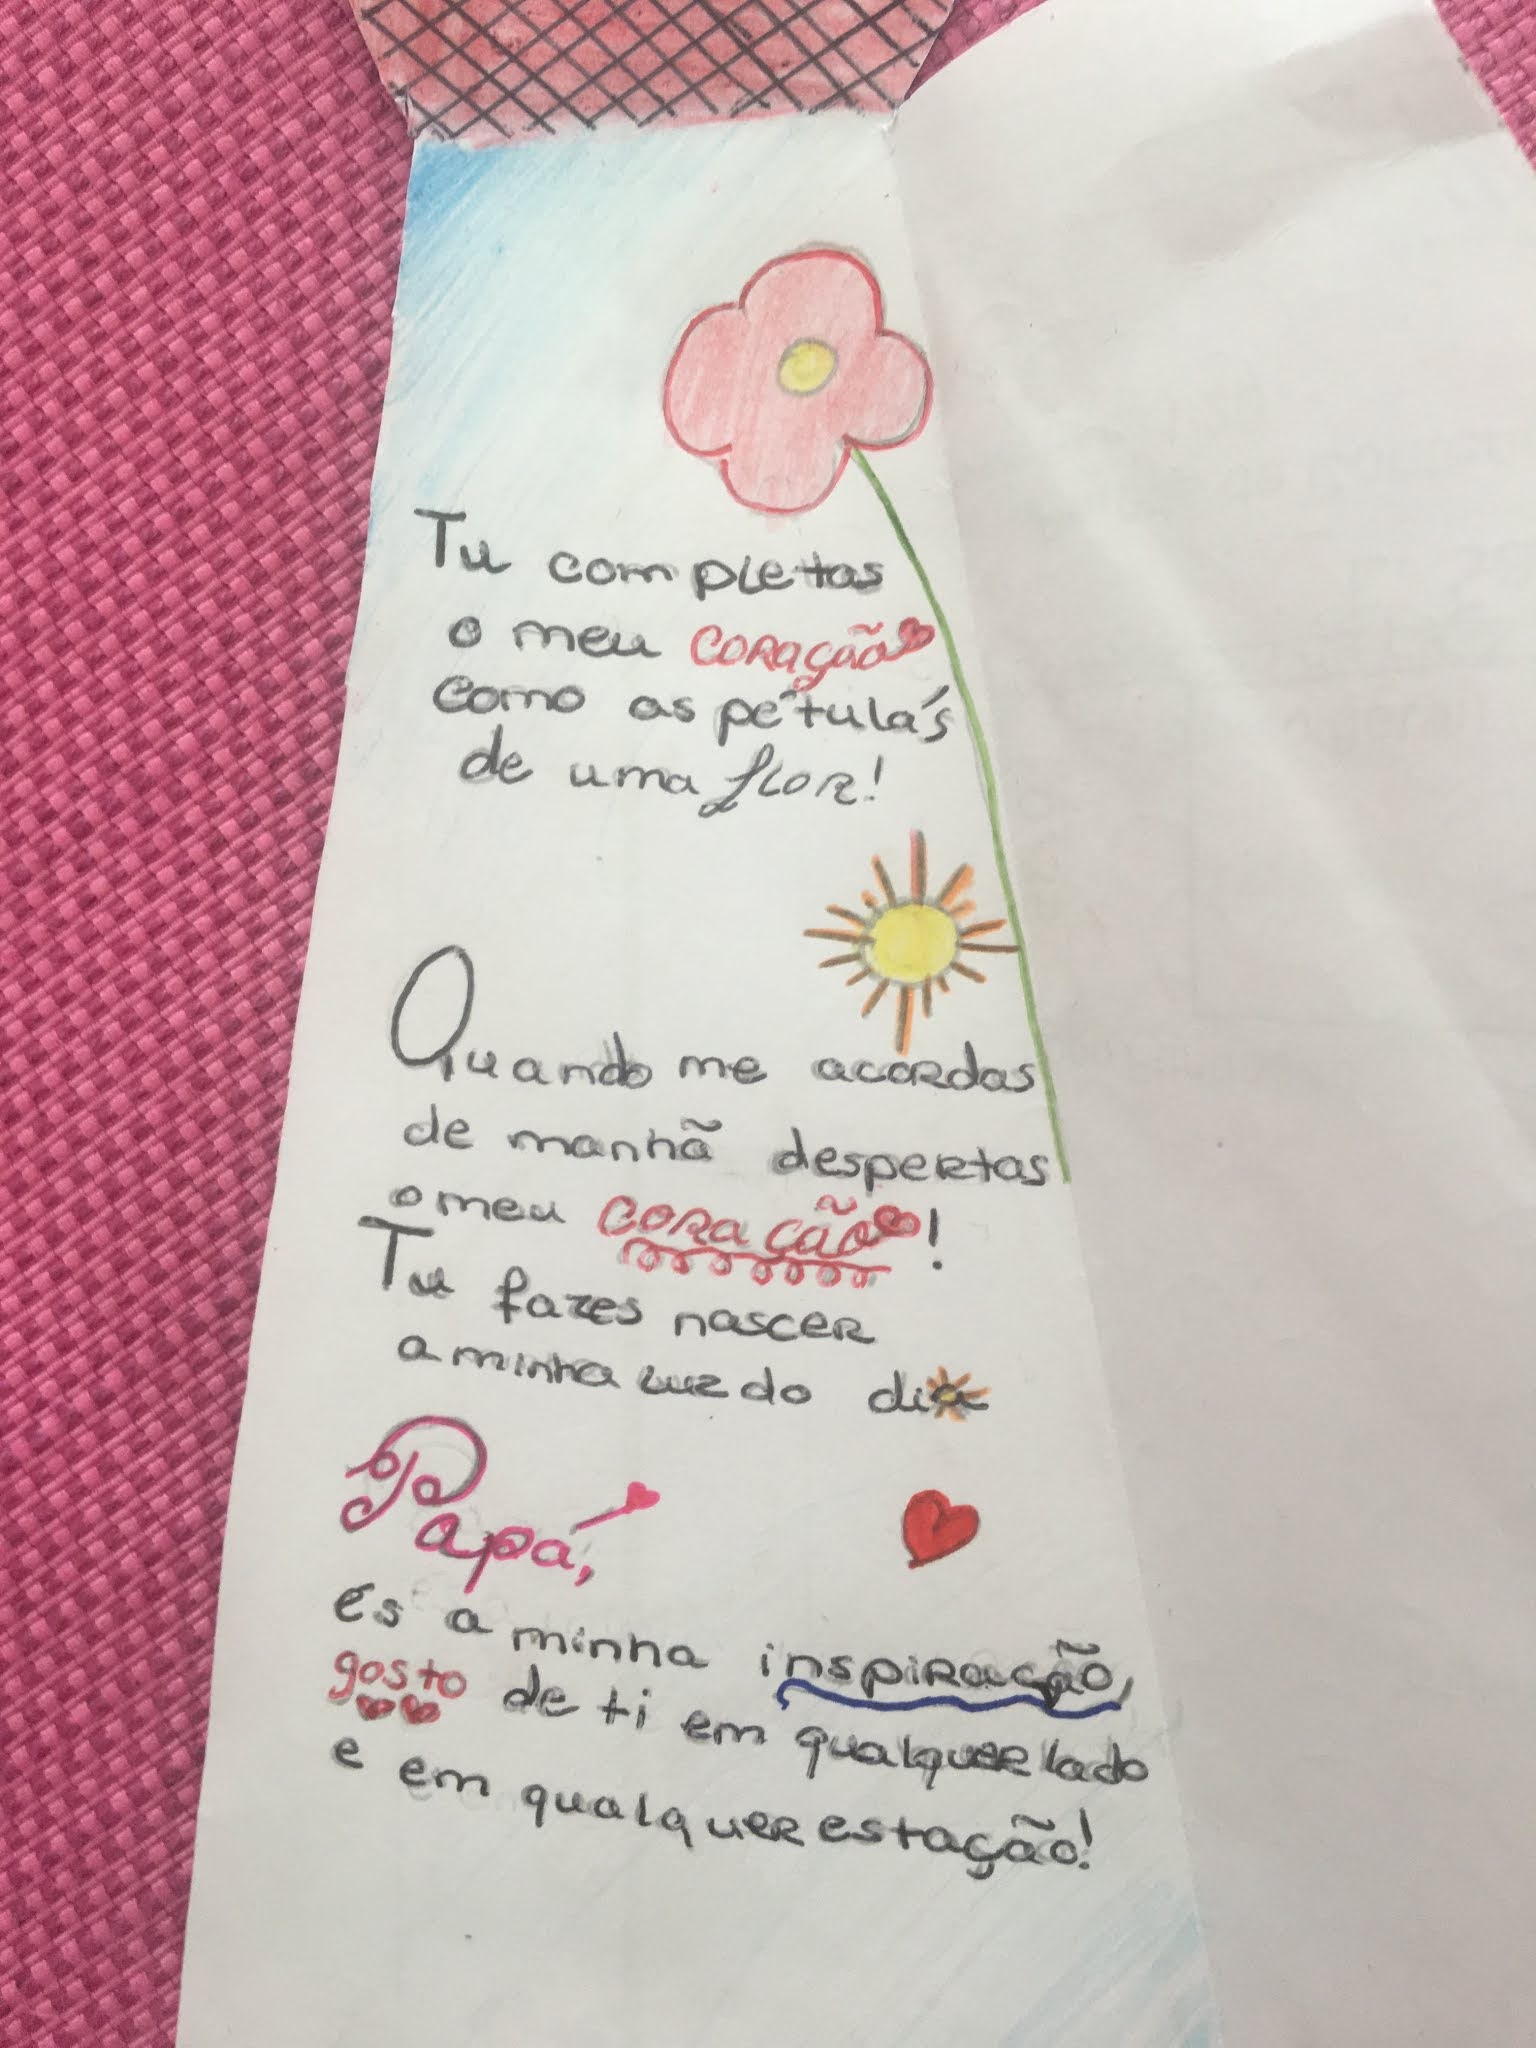 Tu completas
o meu coração
como as pétulás
de uma flor!
Quando me acordas
de manhã despertas
o meu coração!
Tu fazes nascer
a minha luz do dia
Papá,
és a minha inspiração,
gosto de ti em qualquer lado
e em qualquer estação!